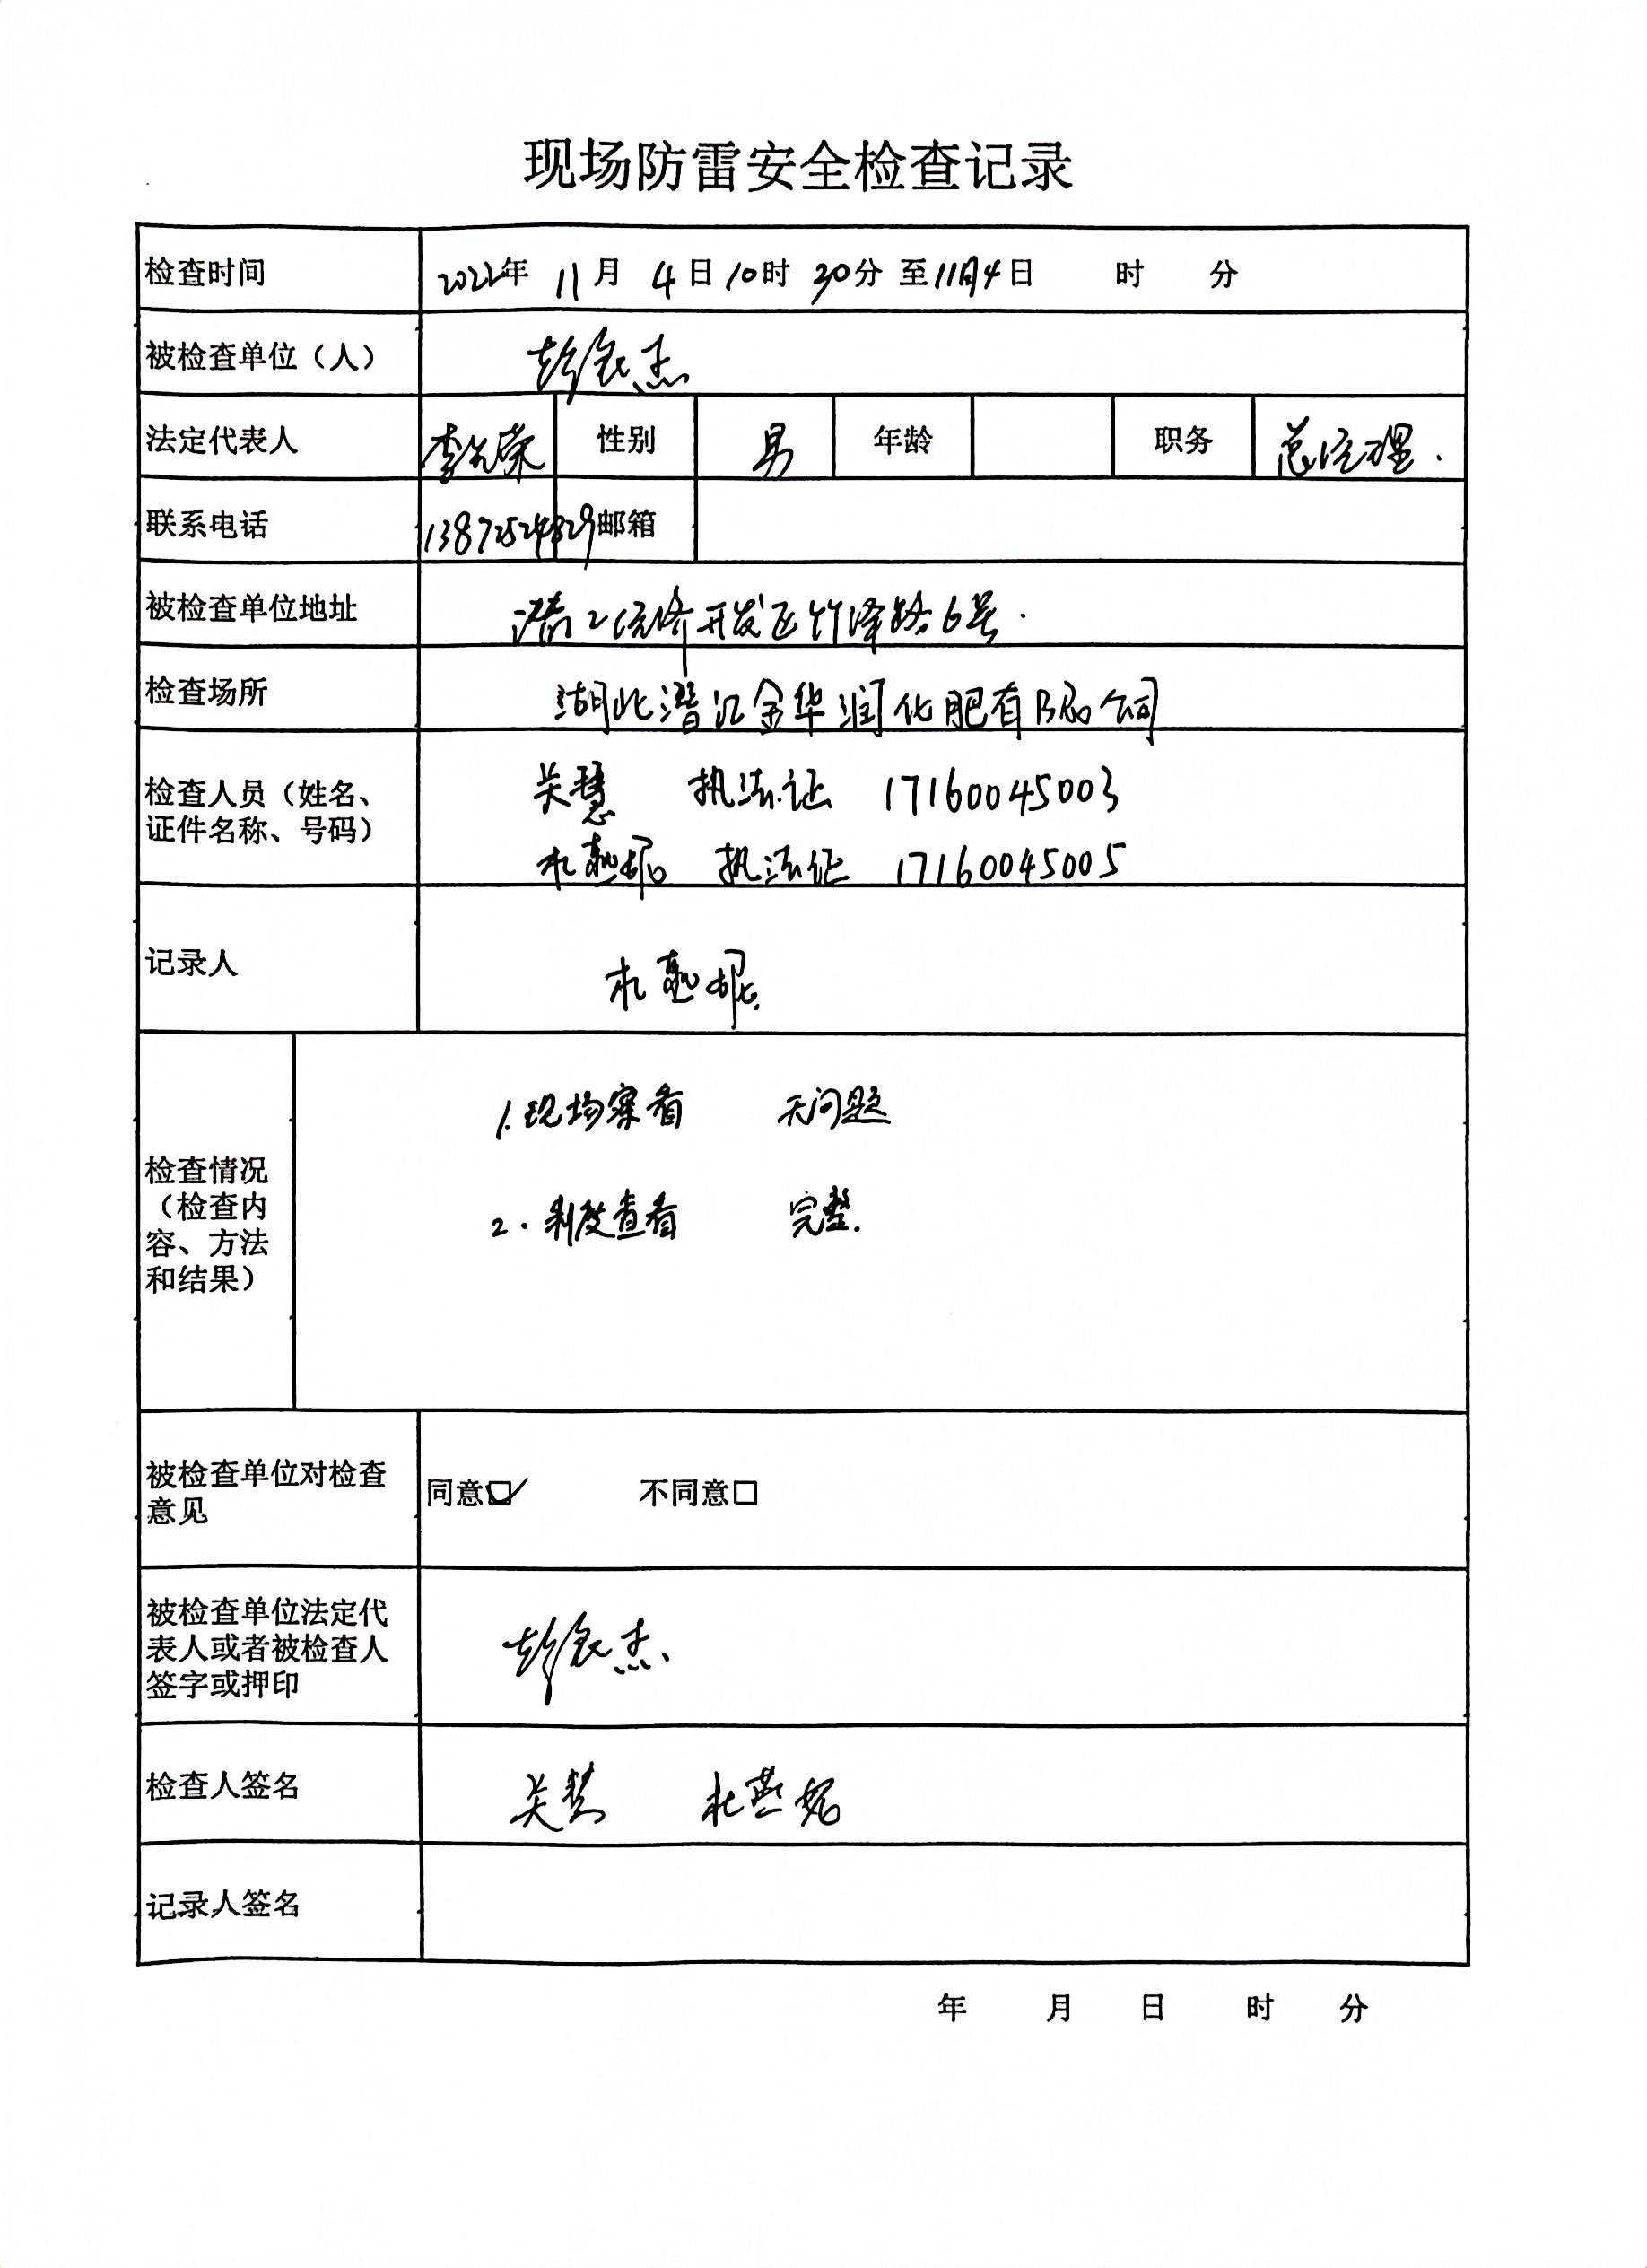 现场防雷安全检查记录
检查时间 2022年 11月 4日10时 30分 至11月4日 时 分
被检查单位（人） 彭良杰
法定代表人 李 荣 性别 男 年龄 职务 总经理.
联系电话 13872524829 邮箱
被检查单位地址 潜江经济开发区竹泽路6号.
检查场所 湖北潜江金华润化肥有限公司
检查人员（姓名、
证件名称、号码）
关慧 执法证 17160045003
执法证 17160045005
记录人
检查情况
（检查内
容、方法
和结果）
1.现场察看 无问题
2.制度查看 完整.
被检查单位对检查
意见
同意☑ 不同意□
被检查单位法定代
表人或者被检查人
签字或押印
彭良杰.
检查人签名 关慧 杜燕妮
记录人签名
年 月 日 时 分